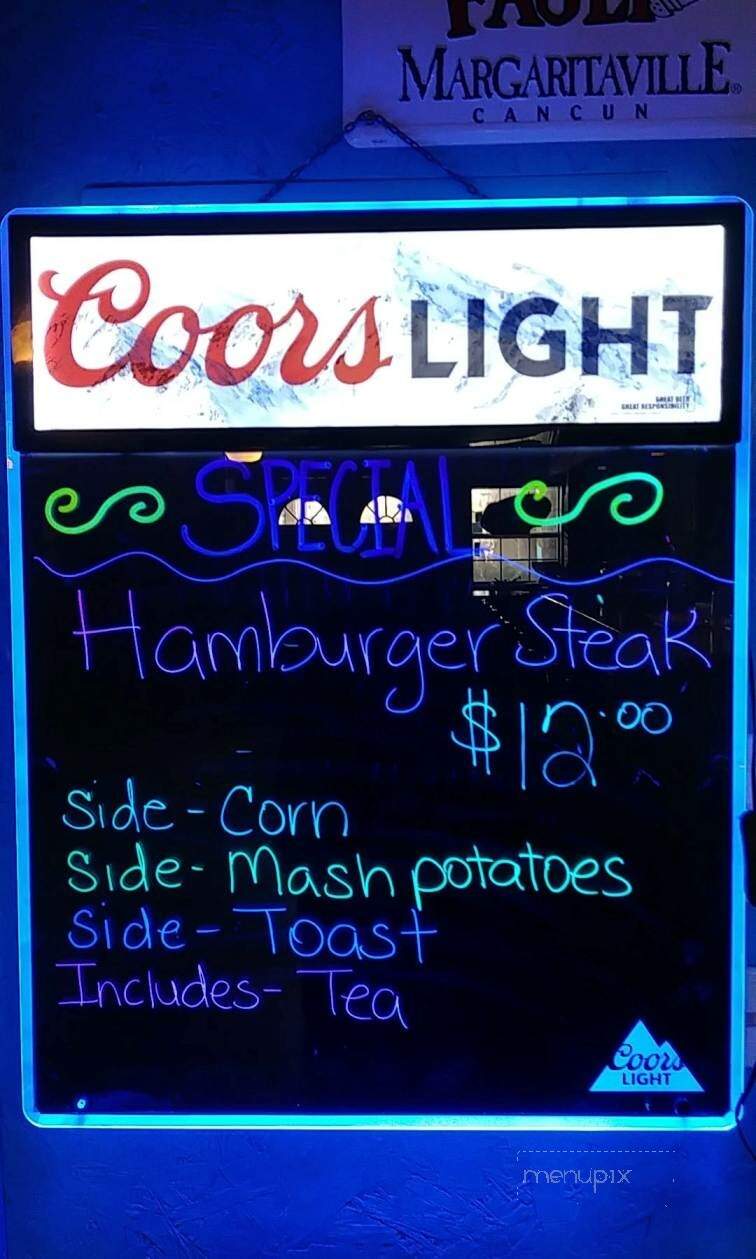 MARGARITAVILLE®
CANCUN
Coors LIGHT
GREAT BEER
GREAT RESPONSIBILITY
SPECIAL
Hamburger Steak
$12.00
Side - Corn
Side - Mash potatoes
Side - Toast
Includes - Tea
Coors
LIGHT
menupix